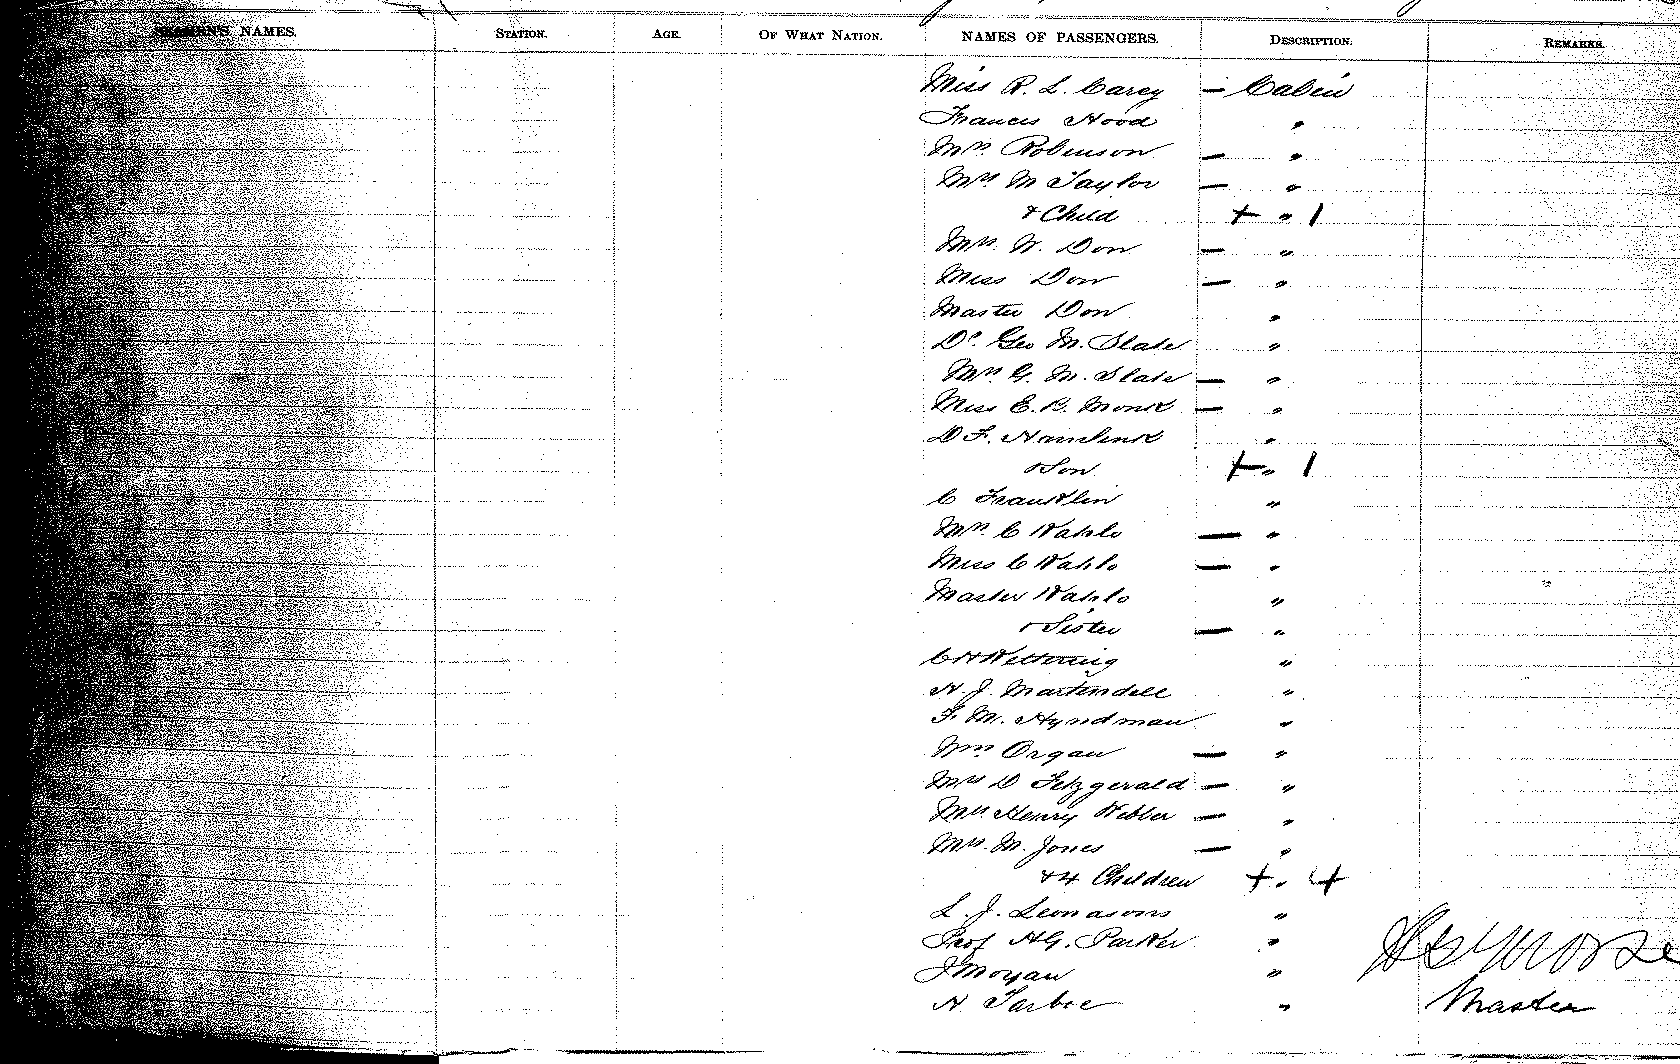 SEAMEN'S NAMES. STATION. AGE. OF WHAT NATION. NAMES OF PASSENGERS. DESCRIPTION. REMARKS.
Miss R. L. Carey — Cabin
Frances Hood "
Mrs. Robinson — "
Mrs M Taylor — "
& Child + " 1
Mrs. W. Don — "
Miss Don — "
Master Don "
Dr. Geo M. Slate "
Mrs G. M. Slate — "
Miss E. B. Monk — "
D F. "
& Son + " 1
C Franklin "
Mrs. C Wahlo — "
Miss C Wahlo — "
Master Wahlo "
& Sister — "
C H "
H. J. Martindell "
F. M. Hyndman "
Organ — "
Mrs D Fitzgerald — "
Mrs Henry Webber — "
Mrs. M. Jones — "
& 4 Children + " 4
L. J. "
Prof HG. Parker "
J Moyan "
H Tarboe "
Morse
Master